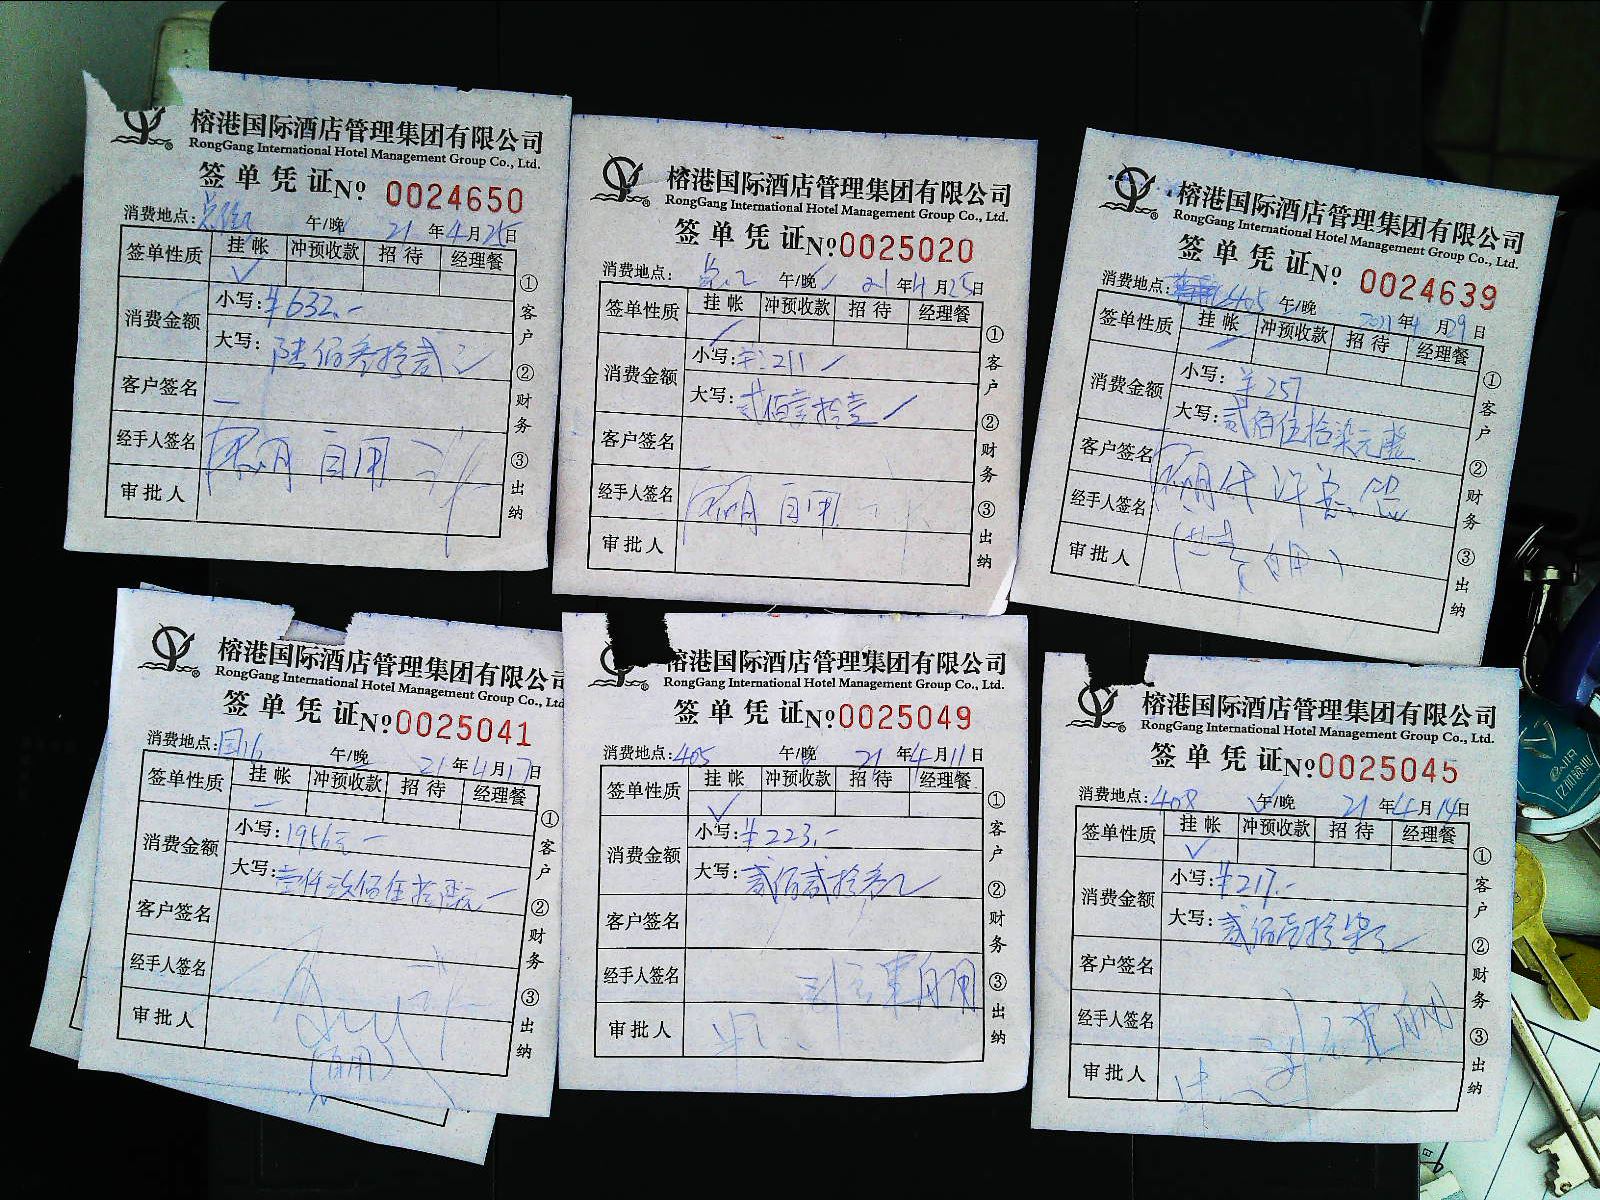 榕港国际酒店管理集团有限公司
RongGang International Hotel Management Group Co., Ltd.
签单凭证 № 0024650
消费地点: 午/晚 21年4月25日
签单性质 挂帐 冲预收款 招待 经理餐
✓
消费金额 小写:¥632.-
大写:陆佰叁拾贰
客户签名
经手人签名 自用
审批人
①客户 ②财务 ③出纳
榕港国际酒店管理集团有限公司
RongGang International Hotel Management Group Co., Ltd.
签单凭证 №0025020
消费地点: 午/晚 21年4月25日
签单性质 挂帐 冲预收款 招待 经理餐
消费金额 小写:¥:211
大写:贰佰壹拾壹
客户签名
经手人签名 自用
审批人
①客户 ②财务 ③出纳
榕港国际酒店管理集团有限公司
RongGang International Hotel Management Group Co., Ltd.
签单凭证 № 0024639
消费地点: 405 午/晚 2021年4月29日
签单性质 挂帐 冲预收款 招待 经理餐
消费金额 小写:¥257
大写:贰佰伍拾柒元整
客户签名
经手人签名
审批人 自用)
①客户 ②财务 ③出纳
榕港国际酒店管理集团有限公司
RongGang International Hotel Management Group Co., Ltd.
签单凭证 №0025041
消费地点:国16 午/晚 21年4月17日
签单性质 挂帐 冲预收款 招待 经理餐
消费金额 小写:1956元
大写:壹仟玖佰伍拾陆元
客户签名
经手人签名
审批人
(自用)
①客户 ②财务 ③出纳
榕港国际酒店管理集团有限公司
RongGang International Hotel Management Group Co., Ltd.
签单凭证 №0025049
消费地点:405 午/晚 21年4月11日
签单性质 挂帐 冲预收款 招待 经理餐
✓
消费金额 小写:¥223.-
大写:贰佰贰拾叁
客户签名
经手人签名 自用
审批人
①客户 ②财务 ③出纳
榕港国际酒店管理集团有限公司
RongGang International Hotel Management Group Co., Ltd.
签单凭证 №0025045
消费地点:408 午/晚 21年4月14日
签单性质 挂帐 冲预收款 招待 经理餐
✓
消费金额 小写:¥217.-
大写:贰佰壹拾柒
客户签名
经手人签名 自用
审批人
①客户 ②财务 ③出纳